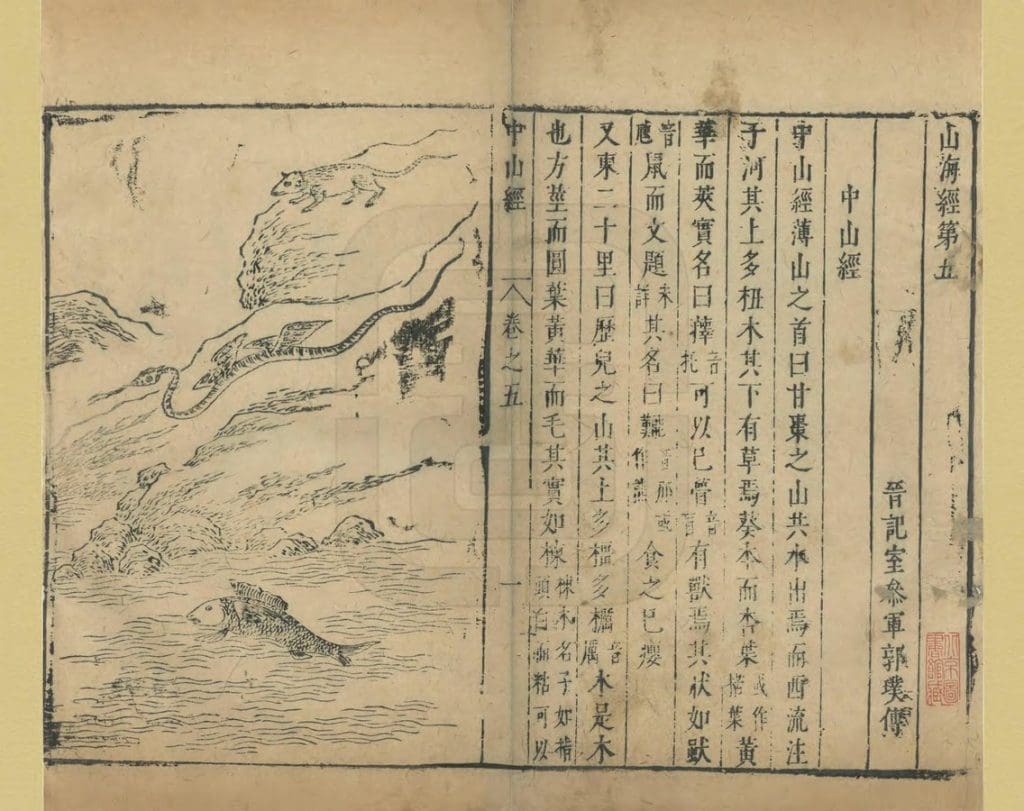 山海經第五
晉記室參軍郭璞傳
中山經
中山經薄山之首曰甘棗之山共水出焉而西流注
于河其上多杻木其下有草焉葵本而杏葉或作楛葉黃
華而莢實名曰蘀音托可以已瞢音盲有獸焉其狀如
鼠而文題其名曰難食之已癭
又東二十里曰歷兒之山其上多橿多櫔音厲木是木
也方莖而圓葉黃華而毛其實如楝楝木名子如指頭白而粘可以
中山經 卷之五 一